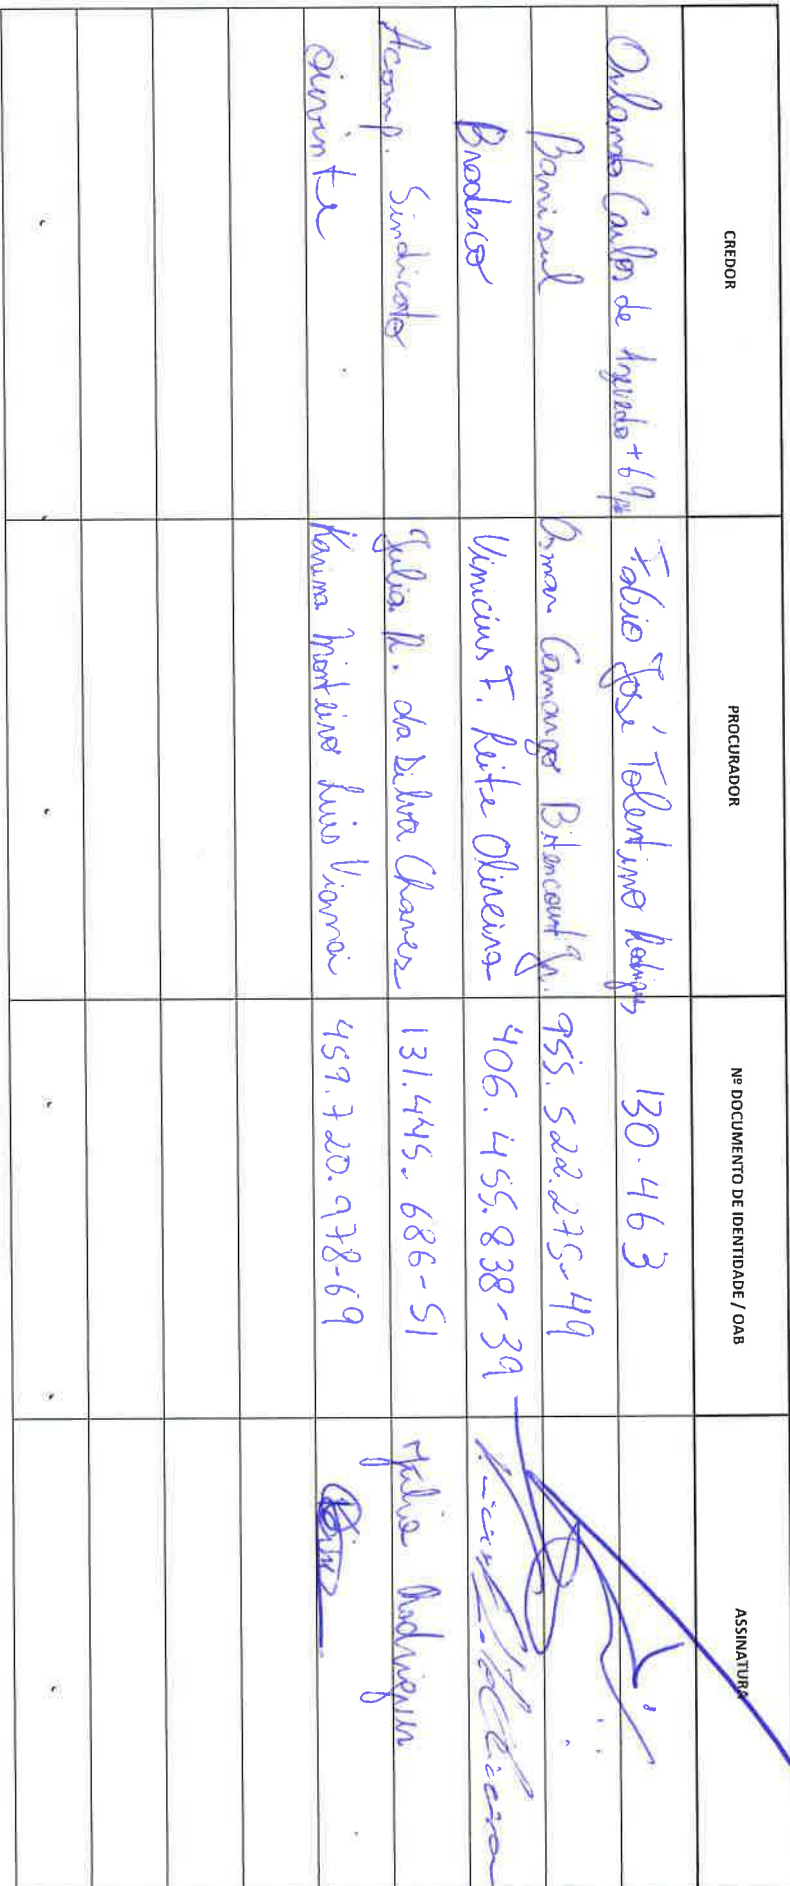 CREDOR PROCURADOR Nº DOCUMENTO DE IDENTIDADE / OAB ASSINATURA
Orlando Carlos de Azevedo + 69 Fabio José Tolentino Rodrigues 130.463
Banisul Osmar Camargo Bitencourt Jr. 955.522.275-49
Bradesco Vinicius F. Leite Oliveira 406.455.838-39
Acomp. Sindicato Julia R. da Silva Chaves 131.445.686-51 Julia Rodrigues
ouvinte Karina Monteiro Luis Vianna 459.720.978-69